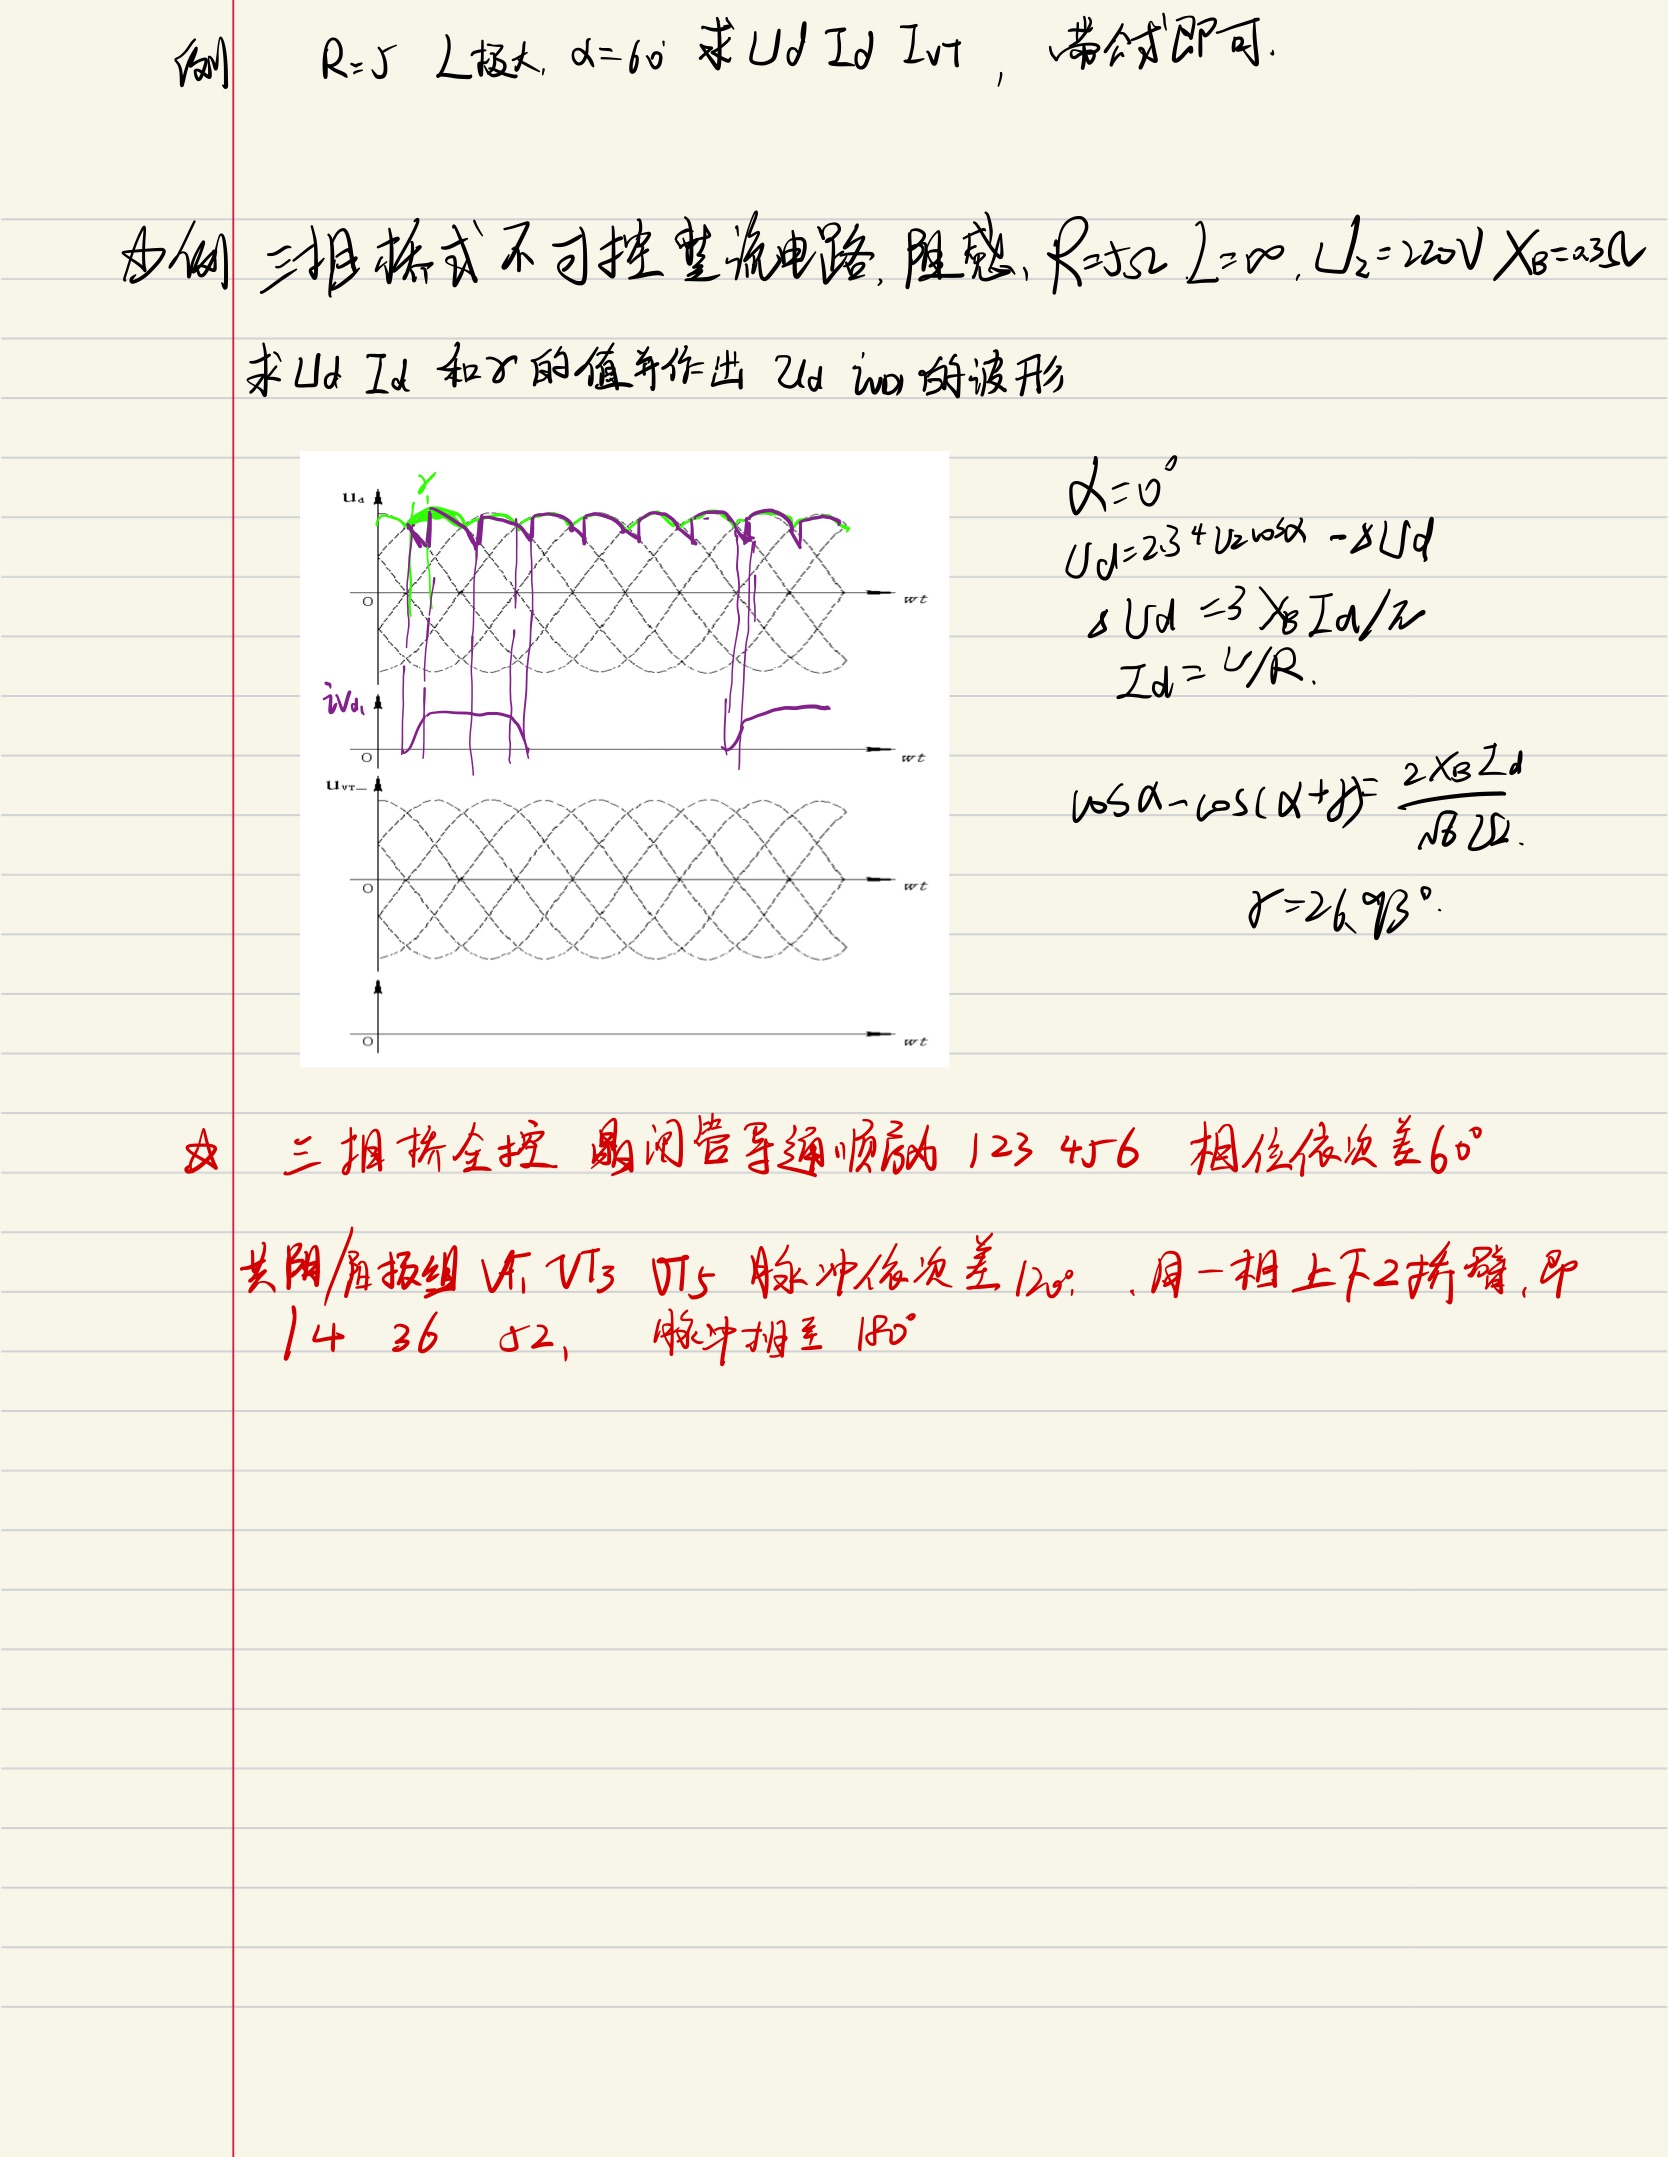 例 R=5 L极大, α=60° 求 Ud Id IVT, 带公式即可.
☆例 三相桥式不可控整流电路, 阻感, R=5Ω L=∞, U₂=220V X_B=0.3Ω
求 Ud Id 和γ的值并作出 Ud iVD₁的波形
γ
u_d
O
wt
iVd₁
O
wt
u_VT
O
wt
O
wt
α=0°
Ud=2.34U₂cosα-ΔUd
ΔUd=3X_BId/π
Id=U/R.
cosα-cos(α+γ)=2X_BId/√6U₂.
γ=26.93°.
☆ 三相桥全控 晶闸管导通顺序为 123456 相位依次差60°
共阴/阳极组 VT₁ VT₃ VT₅ 脉冲依次差120°. 同一相上下2桥臂, 即
14 36 52, 脉冲相差 180°